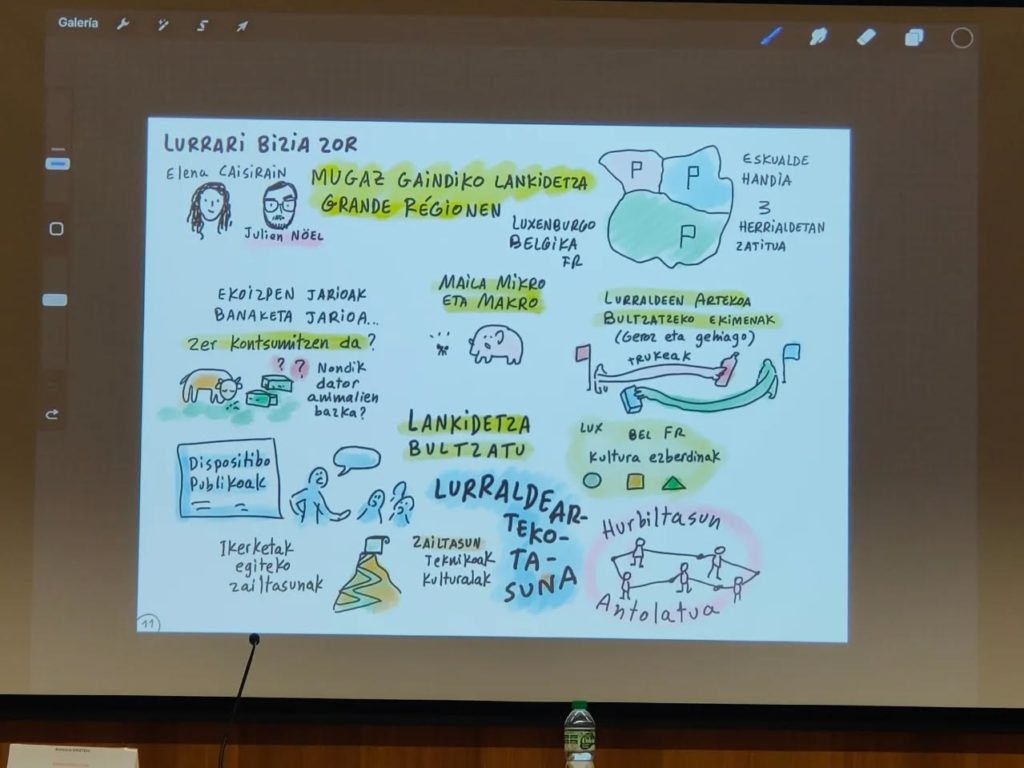 Galería
LURRARI BIZIA ZOR
Elena CAISIRAIN
Julian NÖEL
MUGAZ GAINDIKO LANKIDETZA
GRANDE RÉGIONEN
LUXENBURGO
BELGIKA
FR
P
P
P
ESKUALDE
HANDIA
3
HERRIALDETAN
ZATITUA
EKOIZPEN JARIOAK
BANAKETA JARIOA...
ZER KONTSUMITZEN DA?
? ?
Nondik
dator
animalien
bazka?
MAILA MIKRO
ETA MAKRO
LURRALDEEN ARTEKOA
BULTZATZEKO EKIMENAK
(Geroz eta gehiago)
TRUKEAK
LANKIDETZA
BULTZATU
LUX BEL FR
Kultura ezberdinak
Dispositibo
Publikoak
LURRALDEAR-
TEKO-
TA-
SUNA
Ikerketak
egiteko
zailtasunak
ZAILTASUN
TEKNIKOAK
KULTURALAK
Hurbiltasun
Antolatua
11